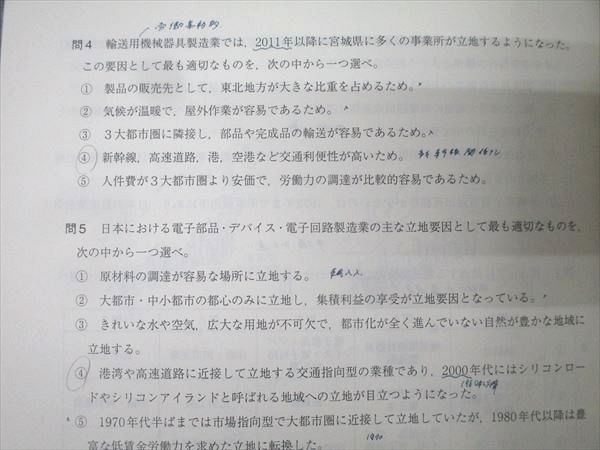 労働集約的
問4 輸送用機械器具製造業では,2011年以降に宮城県に多くの事業所が立地するようになった。
この要因として最も適切なものを,次の中から一つ選べ。
① 製品の販売先として,東北地方が大きな比重を占めるため。
② 気候が温暖で,屋外作業が容易であるため。
③ 3大都市圏に隣接し,部品や完成品の輸送が容易であるため。
④ 新幹線,高速道路,港,空港など交通利便性が高いため。
⑤ 人件費が3大都市圏より安価で,労働力の調達が比較的容易であるため。
問5 日本における電子部品・デバイス・電子回路製造業の主な立地要因として最も適切なものを,
次の中から一つ選べ。
① 原材料の調達が容易な場所に立地する。
② 大都市・中小都市の都心のみに立地し,集積利益の享受が立地要因となっている。
③ きれいな水や空気,広大な用地が不可欠で,都市化が全く進んでいない自然が豊かな地域に
立地する。
④ 港湾や高速道路に近接して立地する交通指向型の業種であり,2000年代にはシリコンロー
ドやシリコンアイランドと呼ばれる地域への立地が目立つようになった。
⑤ 1970年代半ばまでは市場指向型で大都市圏に近接して立地していたが,1980年代以降は豊
富な低賃金労働力を求めた立地に転換した。
1970